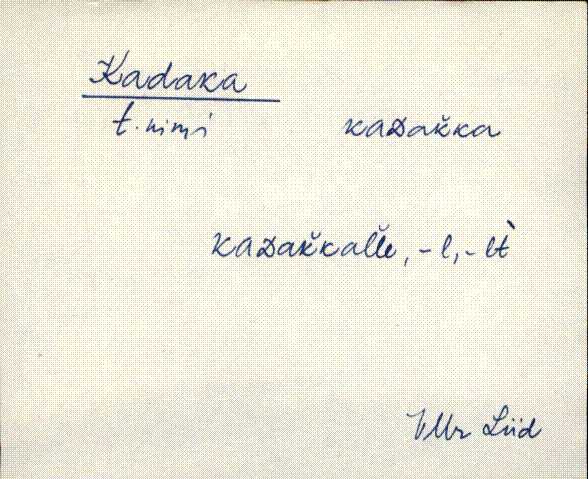 Kadaka
t. nimi kaᴅak̆ka
kaᴅak̆kal̆le, -l, -lt̀
VMr Liid